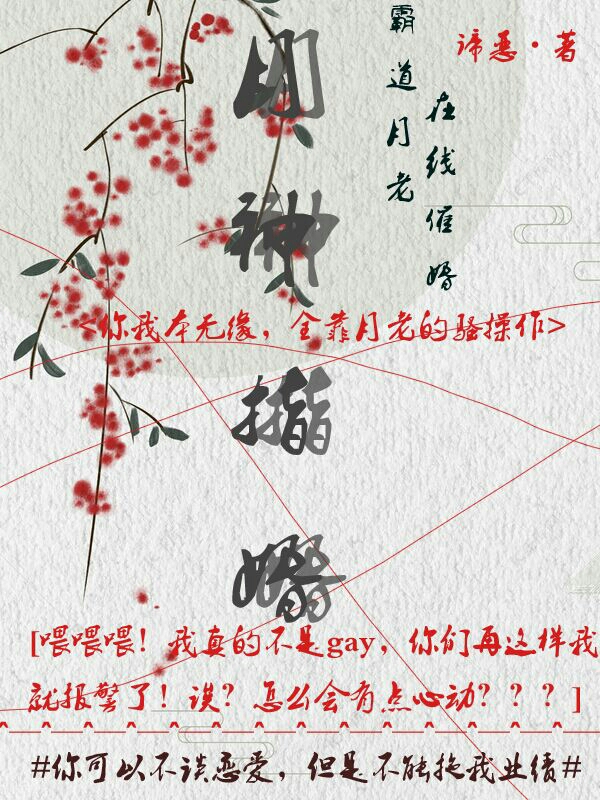 谛恶·著
霸道月老
在线催婚
月神指婚
<你我本无缘，全靠月老的骚操作>
[喂喂喂！我真的不是gay，你们再这样我
就报警了！诶？怎么会有点心动？？？]
#你可以不谈恋爱，但是不能拖我业绩#